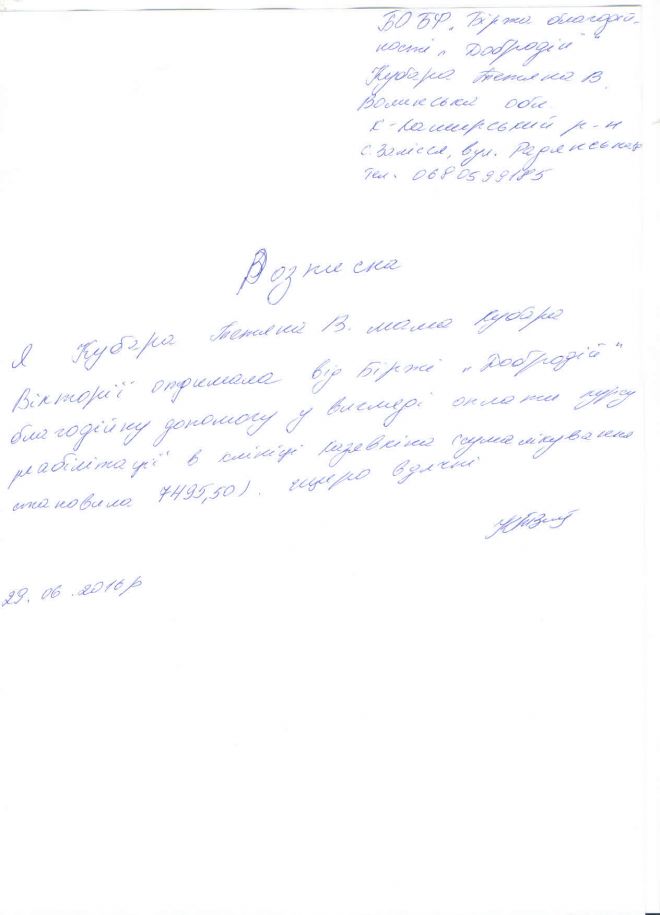 БО БФ „Біржа благодій-
ності „Добродій"
Кубара Тетяна В.
Волинська обл.
К-Каширський р-н
с. Залісся, вул. Радянська
тел. 0680599185
Розписка
Я Кубара Тетяна В. мама Кубара
Вікторії отримала від Біржі „Добродій"
благодійну допомогу у вигляді оплати курсу
реабілітації в клініці Козявкіна (сума лікування
становила 7495,50). щиро вдячні
29.06.2016р